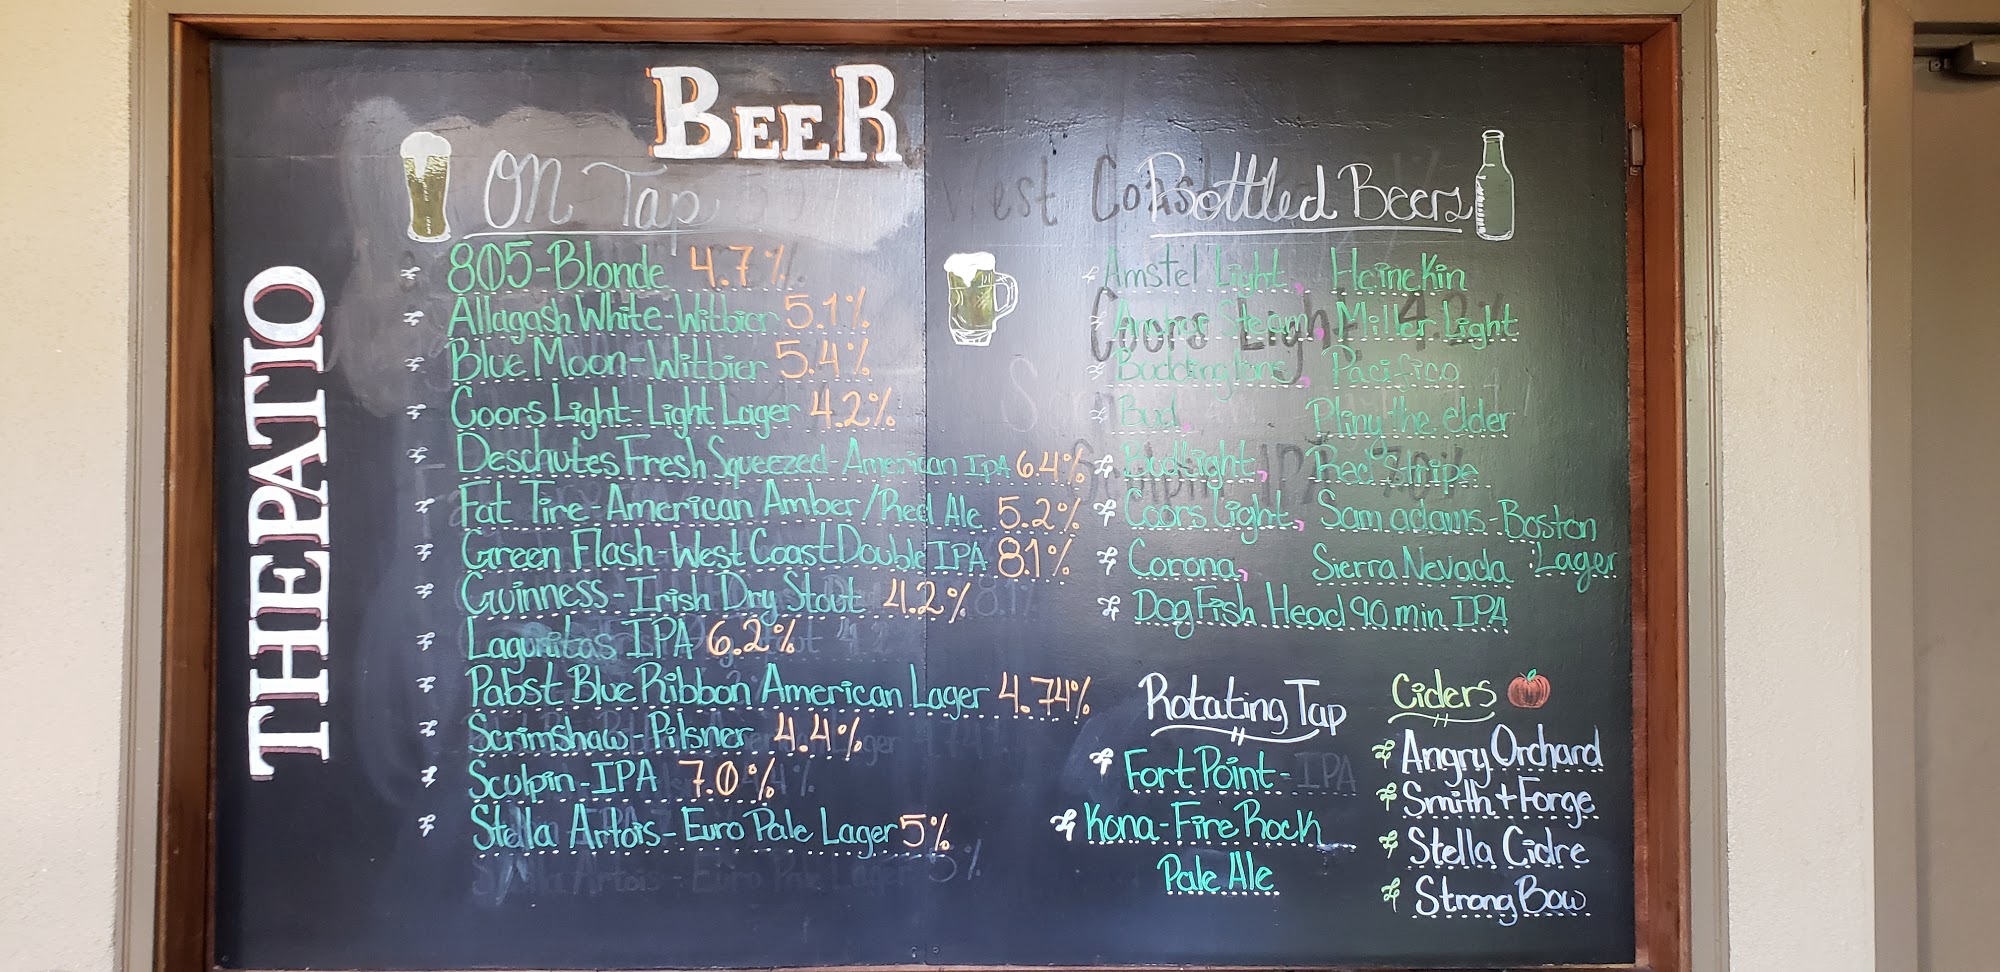 BEER
THE PATIO
On Tap
805-Blonde 4.7%
Allagash White-Witbier 5.1%
Blue Moon-Witbier 5.4%
Coors Light-Light Lager 4.2%
Deschutes Fresh Squeezed-American IPA 6.4%
Fat Tire-American Amber/Red Ale 5.2%
Green Flash-West Coast Double IPA 8.1%
Guinness-Irish Dry Stout 4.2%
Lagunitas IPA 6.2%
Pabst Blue Ribbon American Lager 4.74%
Scrimshaw-Pilsner 4.4%
Sculpin-IPA 7.0%
Stella Artois-Euro Pale Lager 5%
Bottled Beers
Amstel Light, Heinekin
Anchor Steam, Miller Light
Boddingtons, Pacifico
Bud, Pliny the elder
Budlight, Red Stripe
Coors Light, Sam adams-Boston
Lager
Corona, Sierra Nevada
DogFish Head 90 min IPA
Rotating Tap
Fort Point-IPA
Kona-Fire Rock
Pale Ale
Ciders
Angry Orchard
Smith+Forge
Stella Cidre
StrongBow